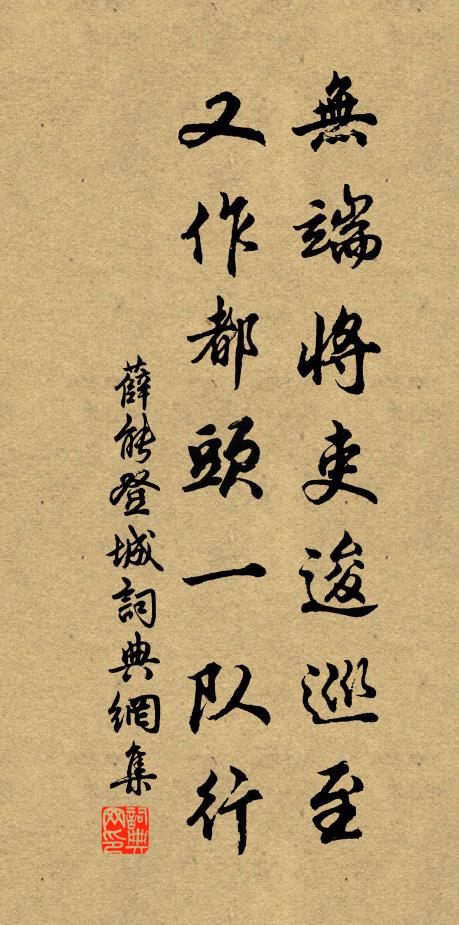 無端將吏逡巡至
又作都頭一队行
薛能登城詞典網集
詞典网印